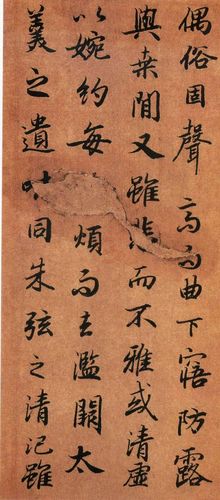 偶俗固聲高而曲下寤防露
與桒閒又雖悲而不雅或清虛
以婉約每煩而去濫闕太
羹之遺同朱弦之清氾雖